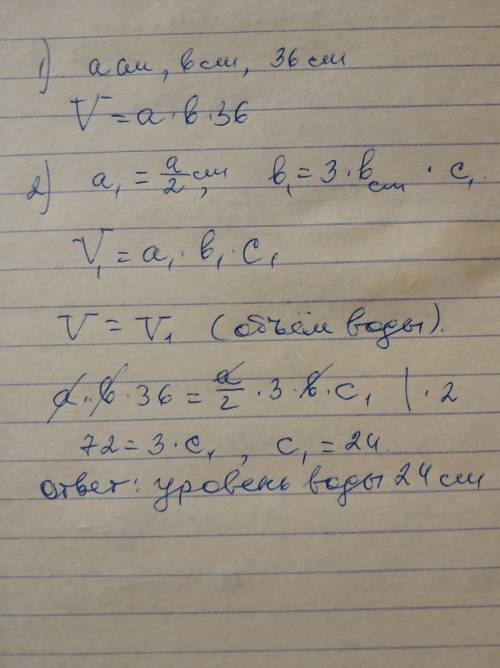 1) a см, в см, 36 см
V = a · в · 36
2) a₁ = a/2 см, в₁ = 3 · в см · c₁
V₁ = a₁ · в₁ · c₁
V = V₁ (объём воды).
a · в · 36 = a/2 · 3 · в · c₁ | · 2
72 = 3 · c₁, c₁ = 24.
ответ: уровень воды 24 см